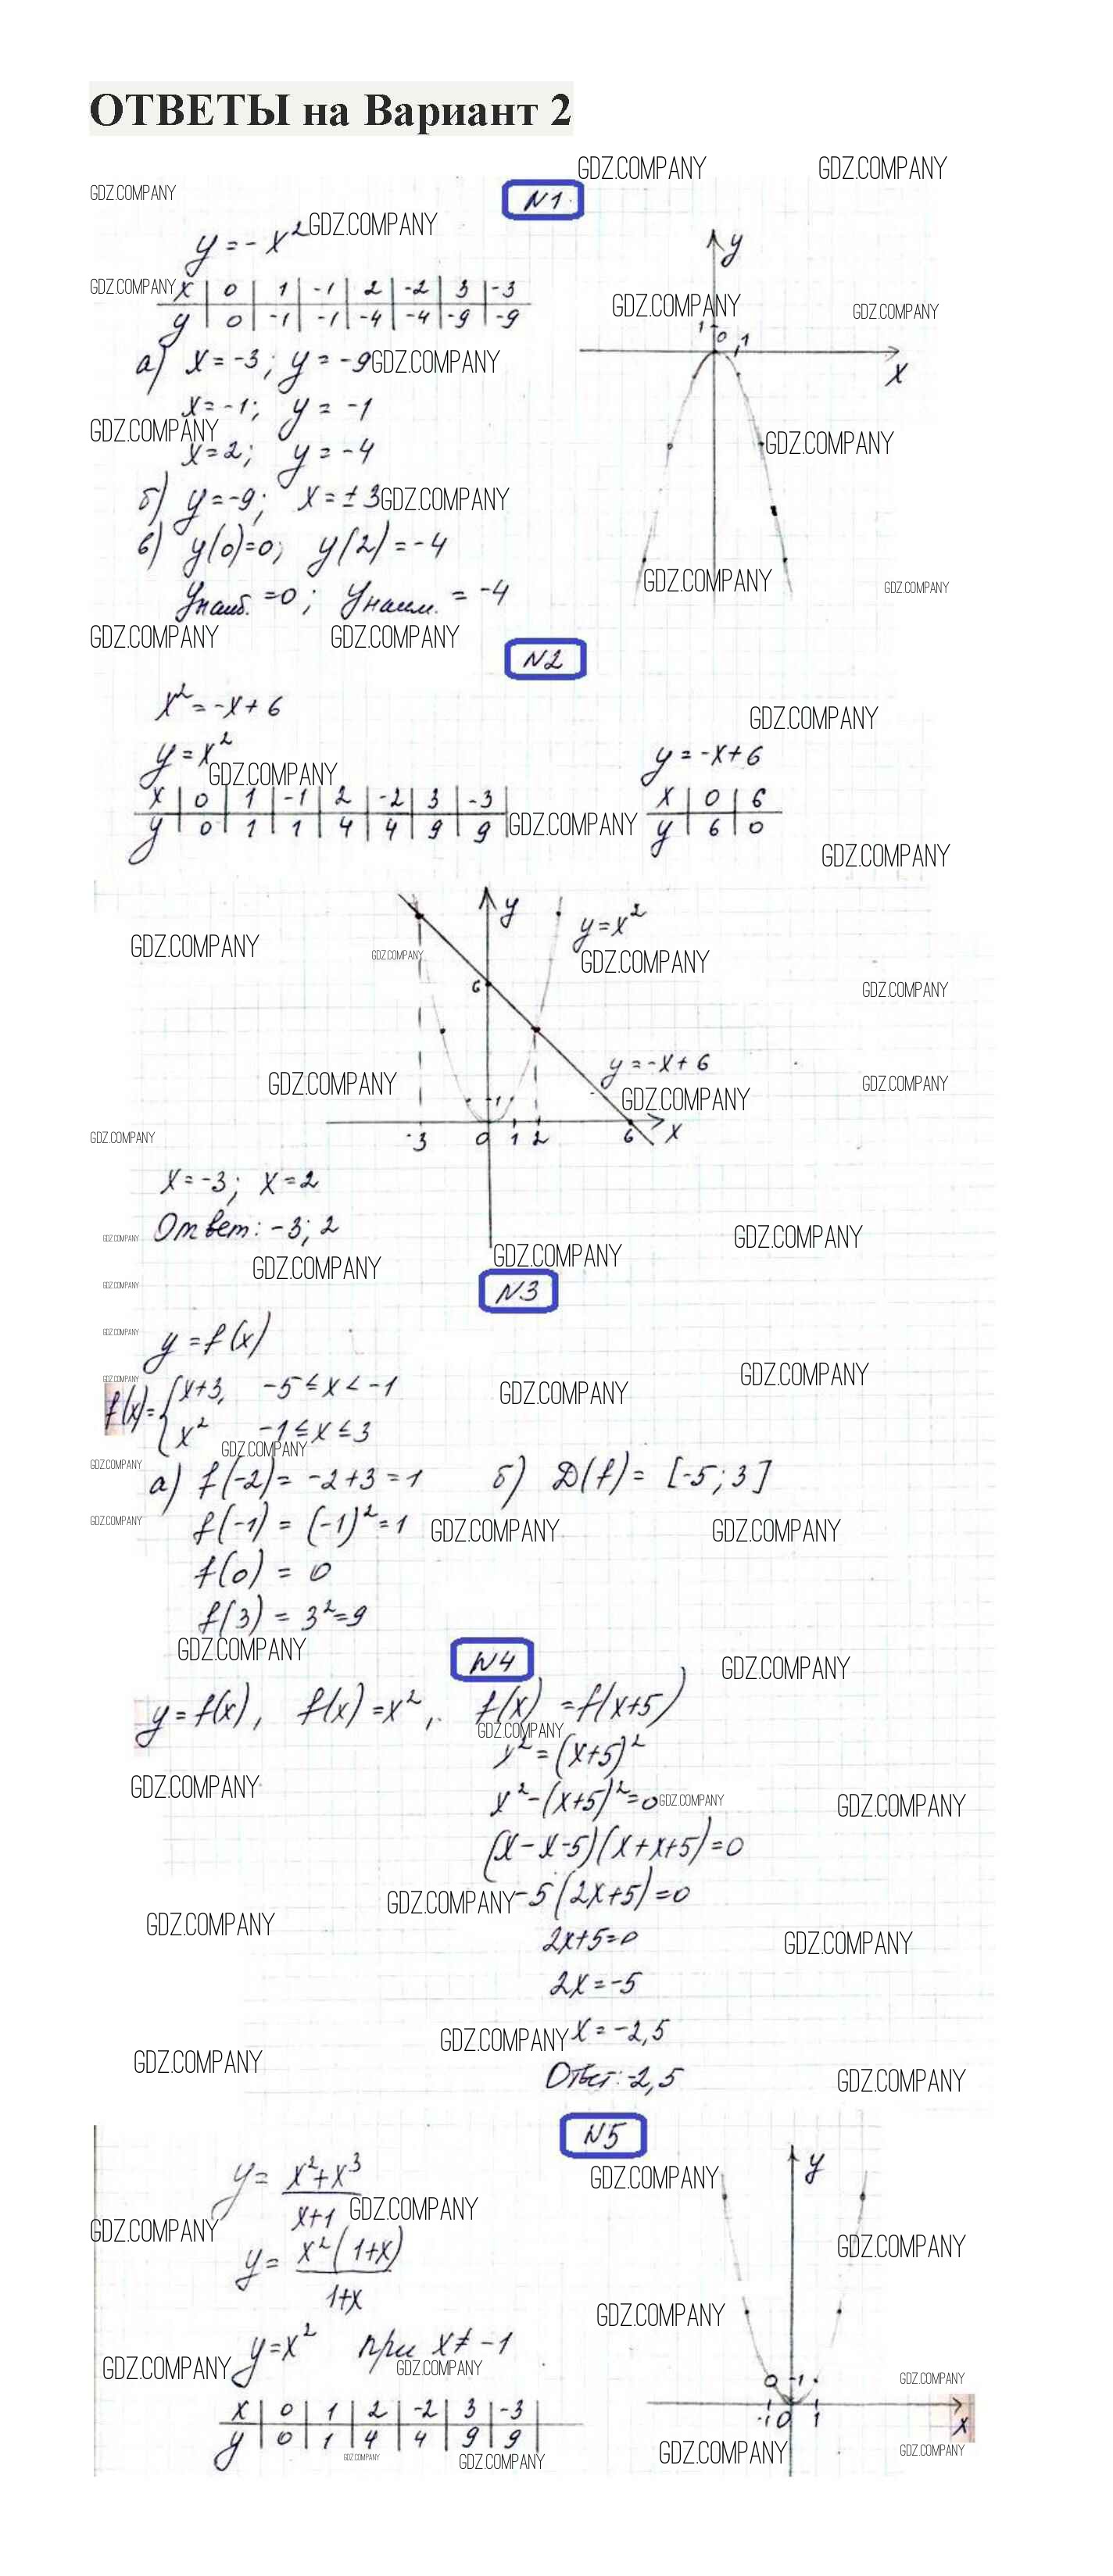 ОТВЕТЫ на Вариант 2
GDZ.COMPANY GDZ.COMPANY
GDZ.COMPANY
N1
y = -x² GDZ.COMPANY
y
GDZ.COMPANY x | 0 | 1 | -1 | 2 | -2 | 3 | -3
y | 0 | -1 | -1 | -4 | -4 | -9 | -9
GDZ.COMPANY GDZ.COMPANY
1 0 1
x
а) x = -3; y = -9 GDZ.COMPANY
x = -1; y = -1
GDZ.COMPANY
GDZ.COMPANY
x = 2; y = -4
б) y = -9; x = ± 3 GDZ.COMPANY
в) y(0)=0; y(2) = -4
GDZ.COMPANY GDZ.COMPANY
yнаиб. = 0; yнаим. = -4
GDZ.COMPANY GDZ.COMPANY
N2
x² = -x + 6
GDZ.COMPANY
y = x² y = -x + 6
GDZ.COMPANY
x | 0 | 1 | -1 | 2 | -2 | 3 | -3 | x | 0 | 6
y | 0 | 1 | 1 | 4 | 4 | 9 | 9 GDZ.COMPANY y | 6 | 0
GDZ.COMPANY
y y = x²
GDZ.COMPANY GDZ.COMPANY GDZ.COMPANY
6 GDZ.COMPANY
y = -x + 6
GDZ.COMPANY GDZ.COMPANY GDZ.COMPANY
1
GDZ.COMPANY -3 0 1 2 6 x
x = -3; x = 2
Ответ: -3; 2
GDZ.COMPANY GDZ.COMPANY
GDZ.COMPANY GDZ.COMPANY
GDZ.COMPANY
N3
GDZ.COMPANY
y = f(x)
GDZ.COMPANY GDZ.COMPANY GDZ.COMPANY
f(x) = { x+3, -5 ≤ x < -1
x² -1 ≤ x ≤ 3
GDZ.COMPANY
GDZ.COMPANY а) f(-2) = -2 + 3 = 1 б) D(f) = [-5; 3]
GDZ.COMPANY f(-1) = (-1)² = 1 GDZ.COMPANY GDZ.COMPANY
f(0) = 0
f(3) = 3² = 9
GDZ.COMPANY
N4
GDZ.COMPANY
y = f(x), f(x) = x², f(x) = f(x+5)
GDZ.COMPANY
x² = (x+5)²
GDZ.COMPANY
x² - (x+5)² = 0 GDZ.COMPANY GDZ.COMPANY
(x - x - 5)(x + x + 5) = 0
GDZ.COMPANY -5(2x+5) = 0
GDZ.COMPANY
2x+5=0 GDZ.COMPANY
2x = -5
GDZ.COMPANY x = -2,5
GDZ.COMPANY
Ответ: -2,5 GDZ.COMPANY
N5
y = x²+x³ / x+1
y
GDZ.COMPANY
GDZ.COMPANY GDZ.COMPANY
y = x²(1+x) / 1+x
GDZ.COMPANY
GDZ.COMPANY
y = x² при x ≠ -1
GDZ.COMPANY GDZ.COMPANY
0 1 GDZ.COMPANY
-1 0 1 x
x | 0 | 1 | 2 | -2 | 3 | -3
y | 0 | 1 | 4 | 4 | 9 | 9
GDZ.COMPANY GDZ.COMPANY GDZ.COMPANY GDZ.COMPANY